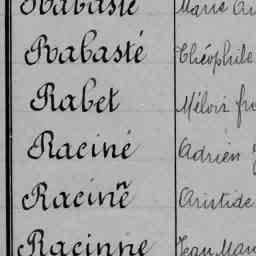 Rabasté Marie
Rabasté Théophile
Rabet Méloir
Raciné Adrien
Racinne Aristide
Racinne Jean Marie